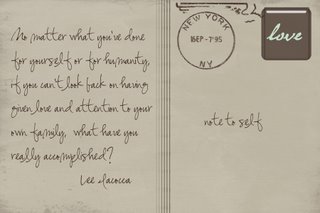 No matter what you've done
for yourself or for humanity,
if you can't look back on having
given love and attention to your
own family, what have you
really accomplished?
Lee Iacocca
NEW YORK
1SEP-7'95
NY
love
note to self